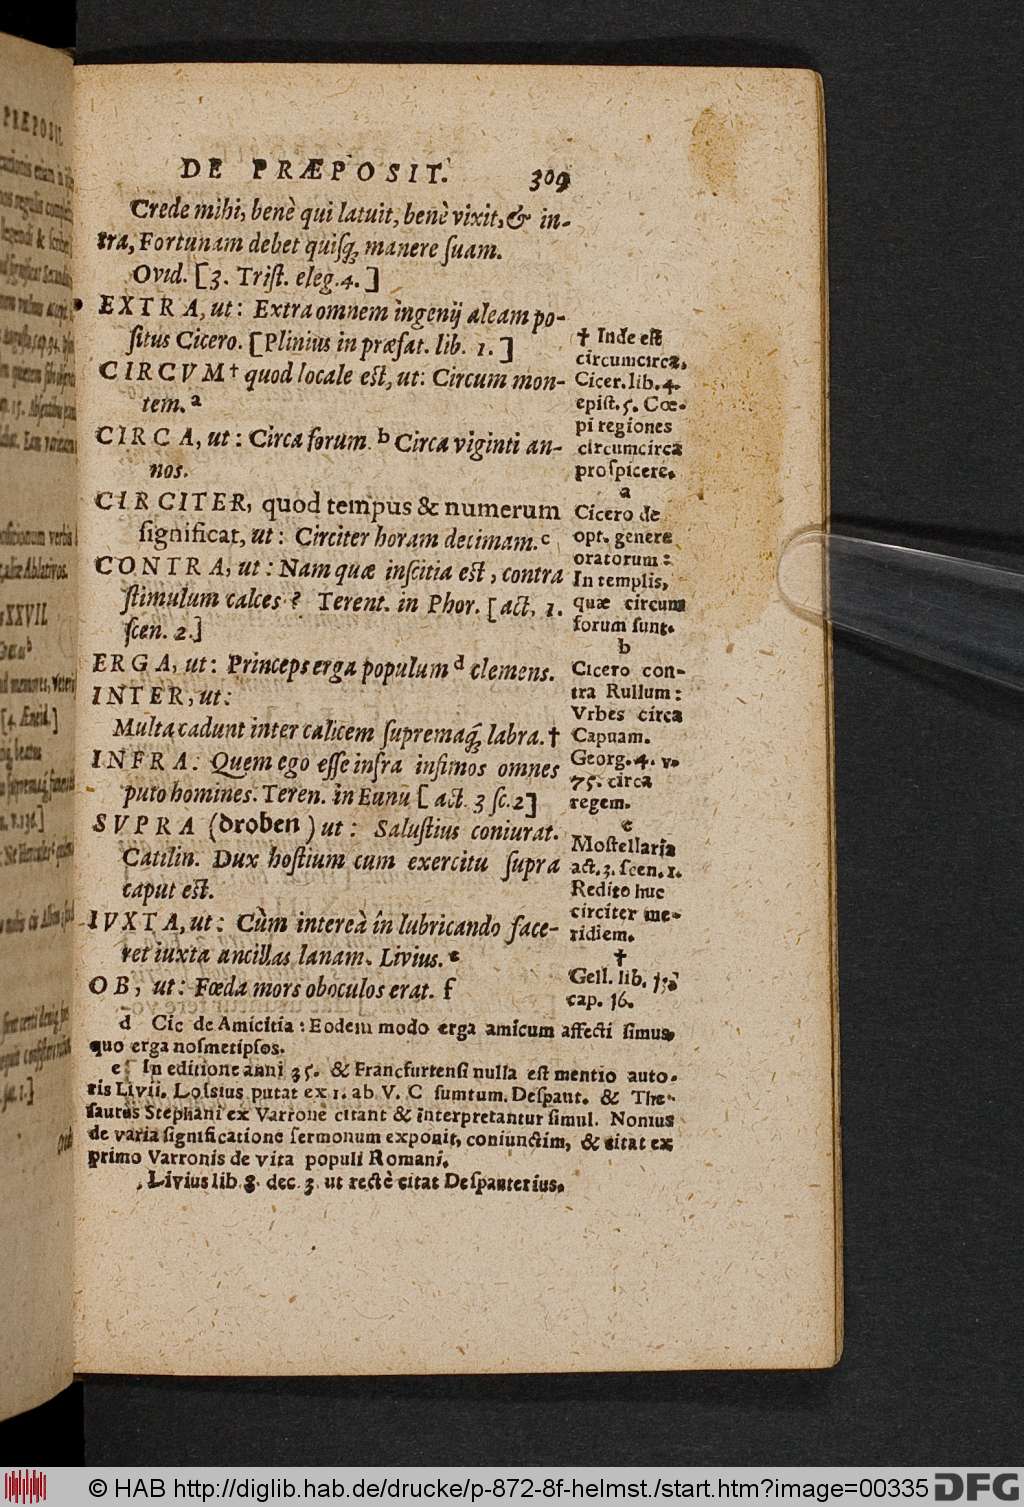 DE PRÆPOSIT. 309
Crede mihi, benè qui latuit, benè vixit, & in-
tra, Fortunam debet quisq; manere suam.
Ovid. [3. Trist. eleg. 4.]
EXTRA, ut: Extra omnem ingenij aleam po-
situs Cicero. [Plinius in præfat. lib. 1.]
CIRCVM† quod locale est, ut: Circum mon-
tem. a
CIRCA, ut: Circa forum. b Circa viginti an-
nos.
CIRCITER, quod tempus & numerum
significat, ut: Circiter horam decimam. c
CONTRA, ut: Nam quæ inscitia est, contra
stimulum calces? Terent. in Phor. [act. 1.
scen. 2.]
ERGA, ut: Princeps erga populum d clemens.
INTER, ut:
Multa cadunt inter calicem supremaq; labra. †
INFRA: Quem ego esse infra infimos omnes
puto homines. Teren. in Eunu [act. 3 sc. 2]
SVPRA (droben) ut: Salustius coniurat.
Catilin. Dux hostium cum exercitu supra
caput est.
IVXTA, ut: Cùm intereà in lubricando face-
ret iuxta ancillas lanam. Livius. e
OB, ut: Fœda mors ob oculos erat. f
† Inde est
circumcirca,
Cicer. lib. 4.
epist. 5. Cœ-
pi regiones
circumcirca
prospicere.
a
Cicero de
opt. genere
oratorum:
In templis,
quæ circum
forum sunt.
b
Cicero con-
tra Rullum:
Vrbes circa
Capuam.
Georg. 4. v.
75. circa
regem.
c
Mostellaria
act. 3. scen. 1.
Redito huc
circiter me-
ridiem.
†
Gell. lib. 13
cap. 16.
d Cic de Amicitia: Eodem modo erga amicum affecti simus,
quo erga nosmetipsos.
e In editione anni 35. & Francfurtensi nulla est mentio auto-
ris Livii. Lossius putat ex 1. ab V. C sumtum. Despaut. & The-
saurus Stephani ex Varrone citant & interpretantur simul. Nonius
de varia significatione sermonum exponit, coniunctim, & citat ex
primo Varronis de vita populi Romani.
Livius lib. 8. dec. 3. ut rectè citat Despauterius.
© HAB http://diglib.hab.de/drucke/p-872-8f-helmst./start.htm?image=00335
DFG